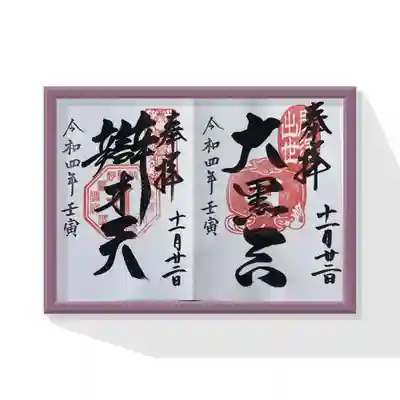 奉拝
十一月廿二日
出世
大黒天
令和四年壬寅
奉拝
十一月廿二日
辯才天
令和四年壬寅